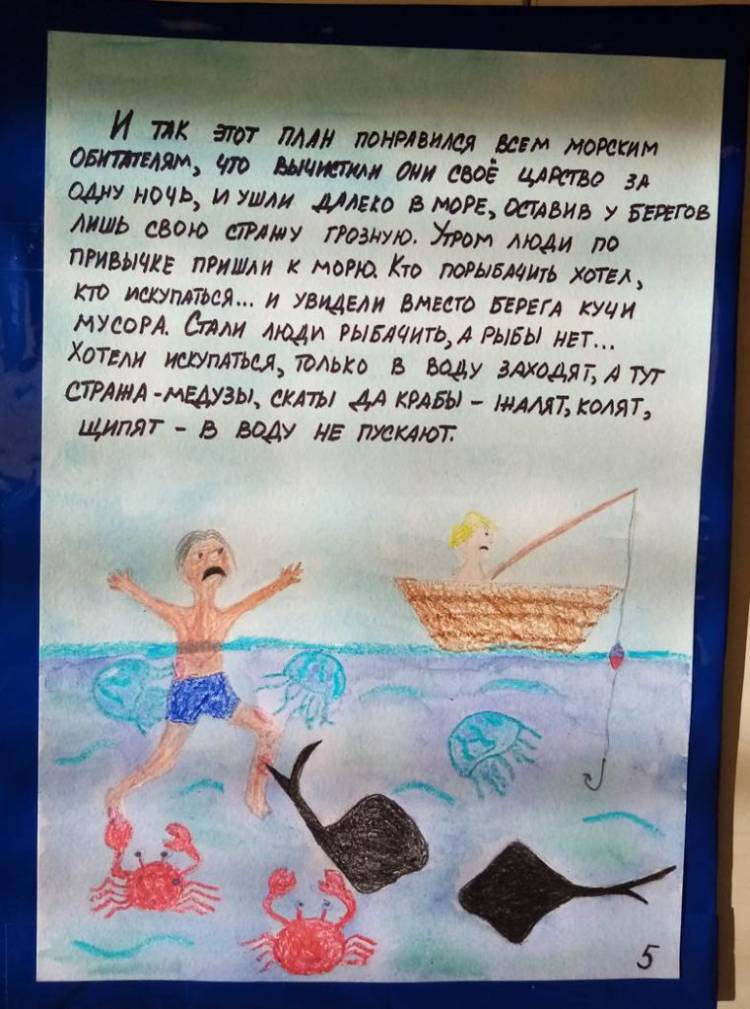 И так этот план понравился всем морским
обитателям, что вычистили они своё царство за
одну ночь, и ушли далеко в море, оставив у берегов
лишь свою стражу грозную. Утром люди по
привычке пришли к морю. Кто порыбачить хотел,
кто искупаться... и увидели вместо берега кучи
мусора. Стали люди рыбачить, а рыбы нет...
Хотели искупаться, только в воду заходят, а тут
стража - медузы, скаты да крабы - жалят, колят,
щипят - в воду не пускают.
5